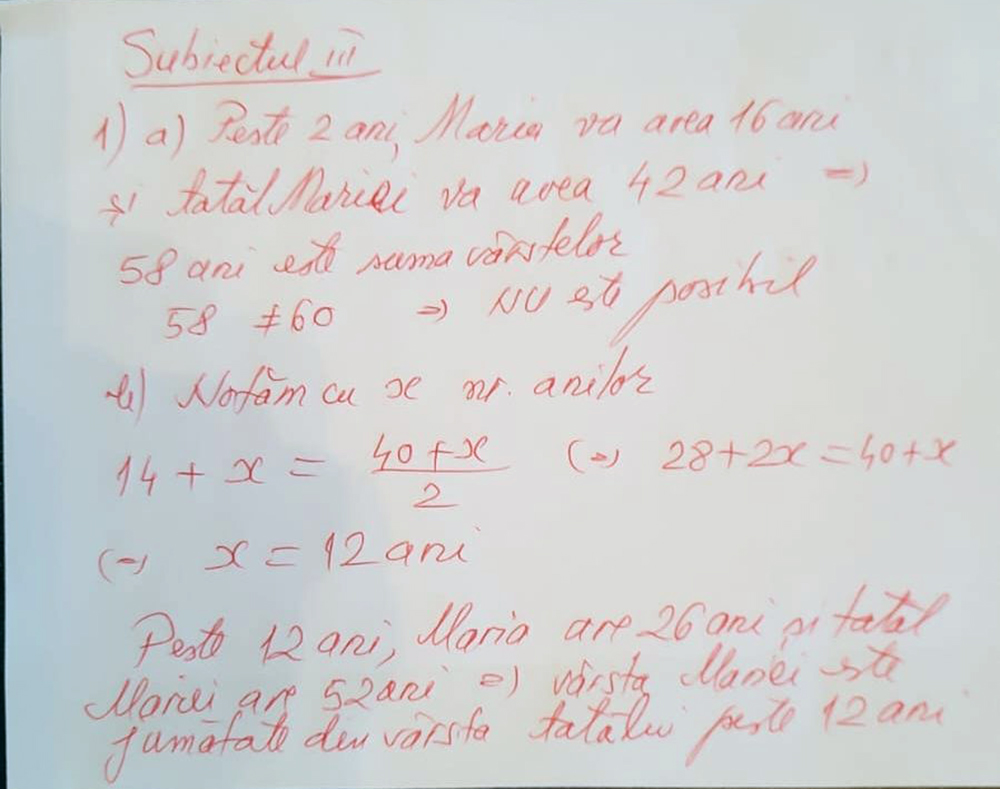 Subiectul III
1) a) Peste 2 ani, Maria va avea 16 ani
și tatăl Mariei va avea 42 ani =)
58 ani este suma vârstelor
58 ≠ 60 =) NU este posibil
b) Notăm cu x nr. anilor
14 + x = (40 + x)/2 (=) 28 + 2x = 40 + x
(=) x = 12 ani
Peste 12 ani, Maria are 26 ani și tatăl
Mariei are 52 ani =) vârsta Mariei este
jumătate din vârsta tatălui peste 12 ani